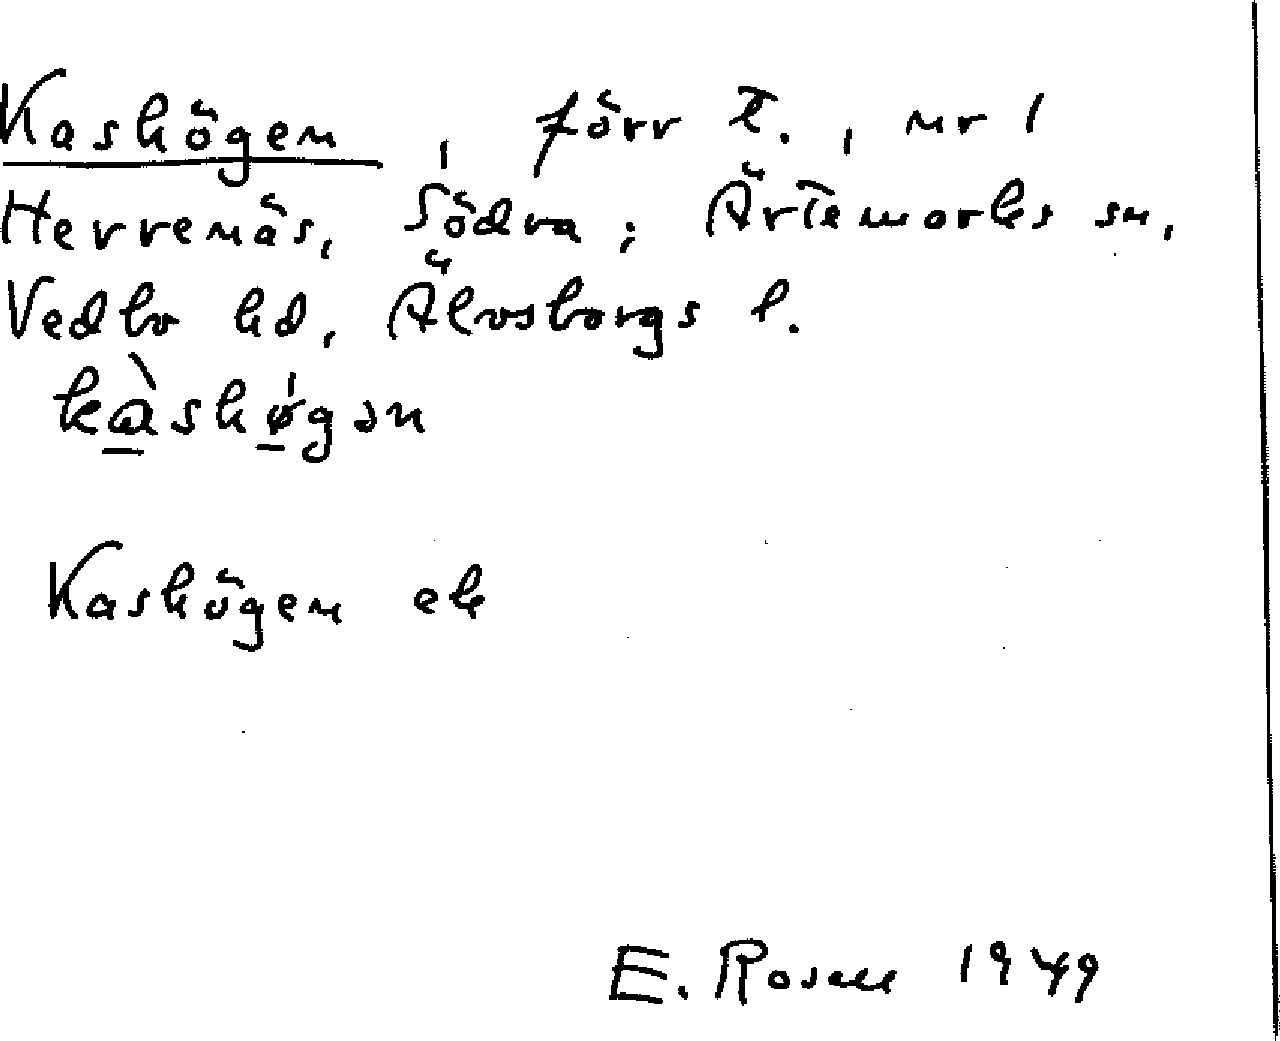 Kashögen, förr t., nr 1
Herrenäs, Södra; Ärtemarks sn,
Vedbo hd, Älvsborgs l.
kàshø̍gən
Kashögen ek
E. Rosell 1949